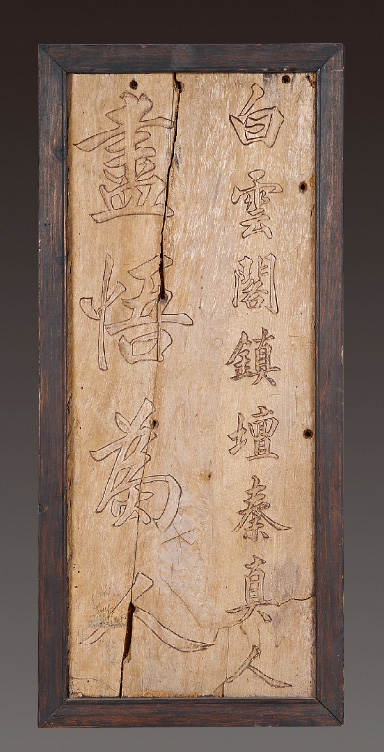 白雲閣鎮壇秦真人
盡悟為人